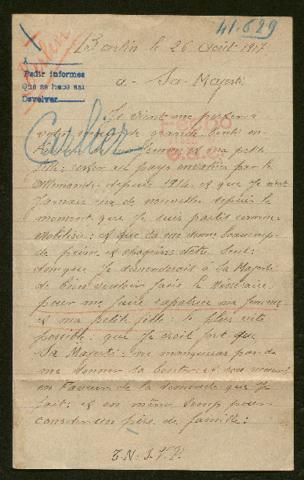 41.629
Berlin
Pedir informes
Que se hace así
Devolver.
le 26 Août 1917
a - Sa - Majesté
Je vient me
votre grande bonté en
et ma petite
fille: au pays envahie par le
Allemands depuis 1914. et que Je n'ait
Jamais eu de nouvelle depuis le
moment que Je suis partit comme
Mobilisé: et que ca me donne beaucoup
de peine et chagrins d'être seul:
donque Je demanderait à Sa Majesté
de bien vouloir faire le nécessaire
pour me faire rapatrier ma femme
et ma petit fille: le plus vite
possible: que Je croit fort que
Sa Majesté: ne manquera pas de
me donner sa bonté: et
en faveur de la demande que Je
fait: et en même temp pour
consoler un père de famille:
T.N.S.V.P.